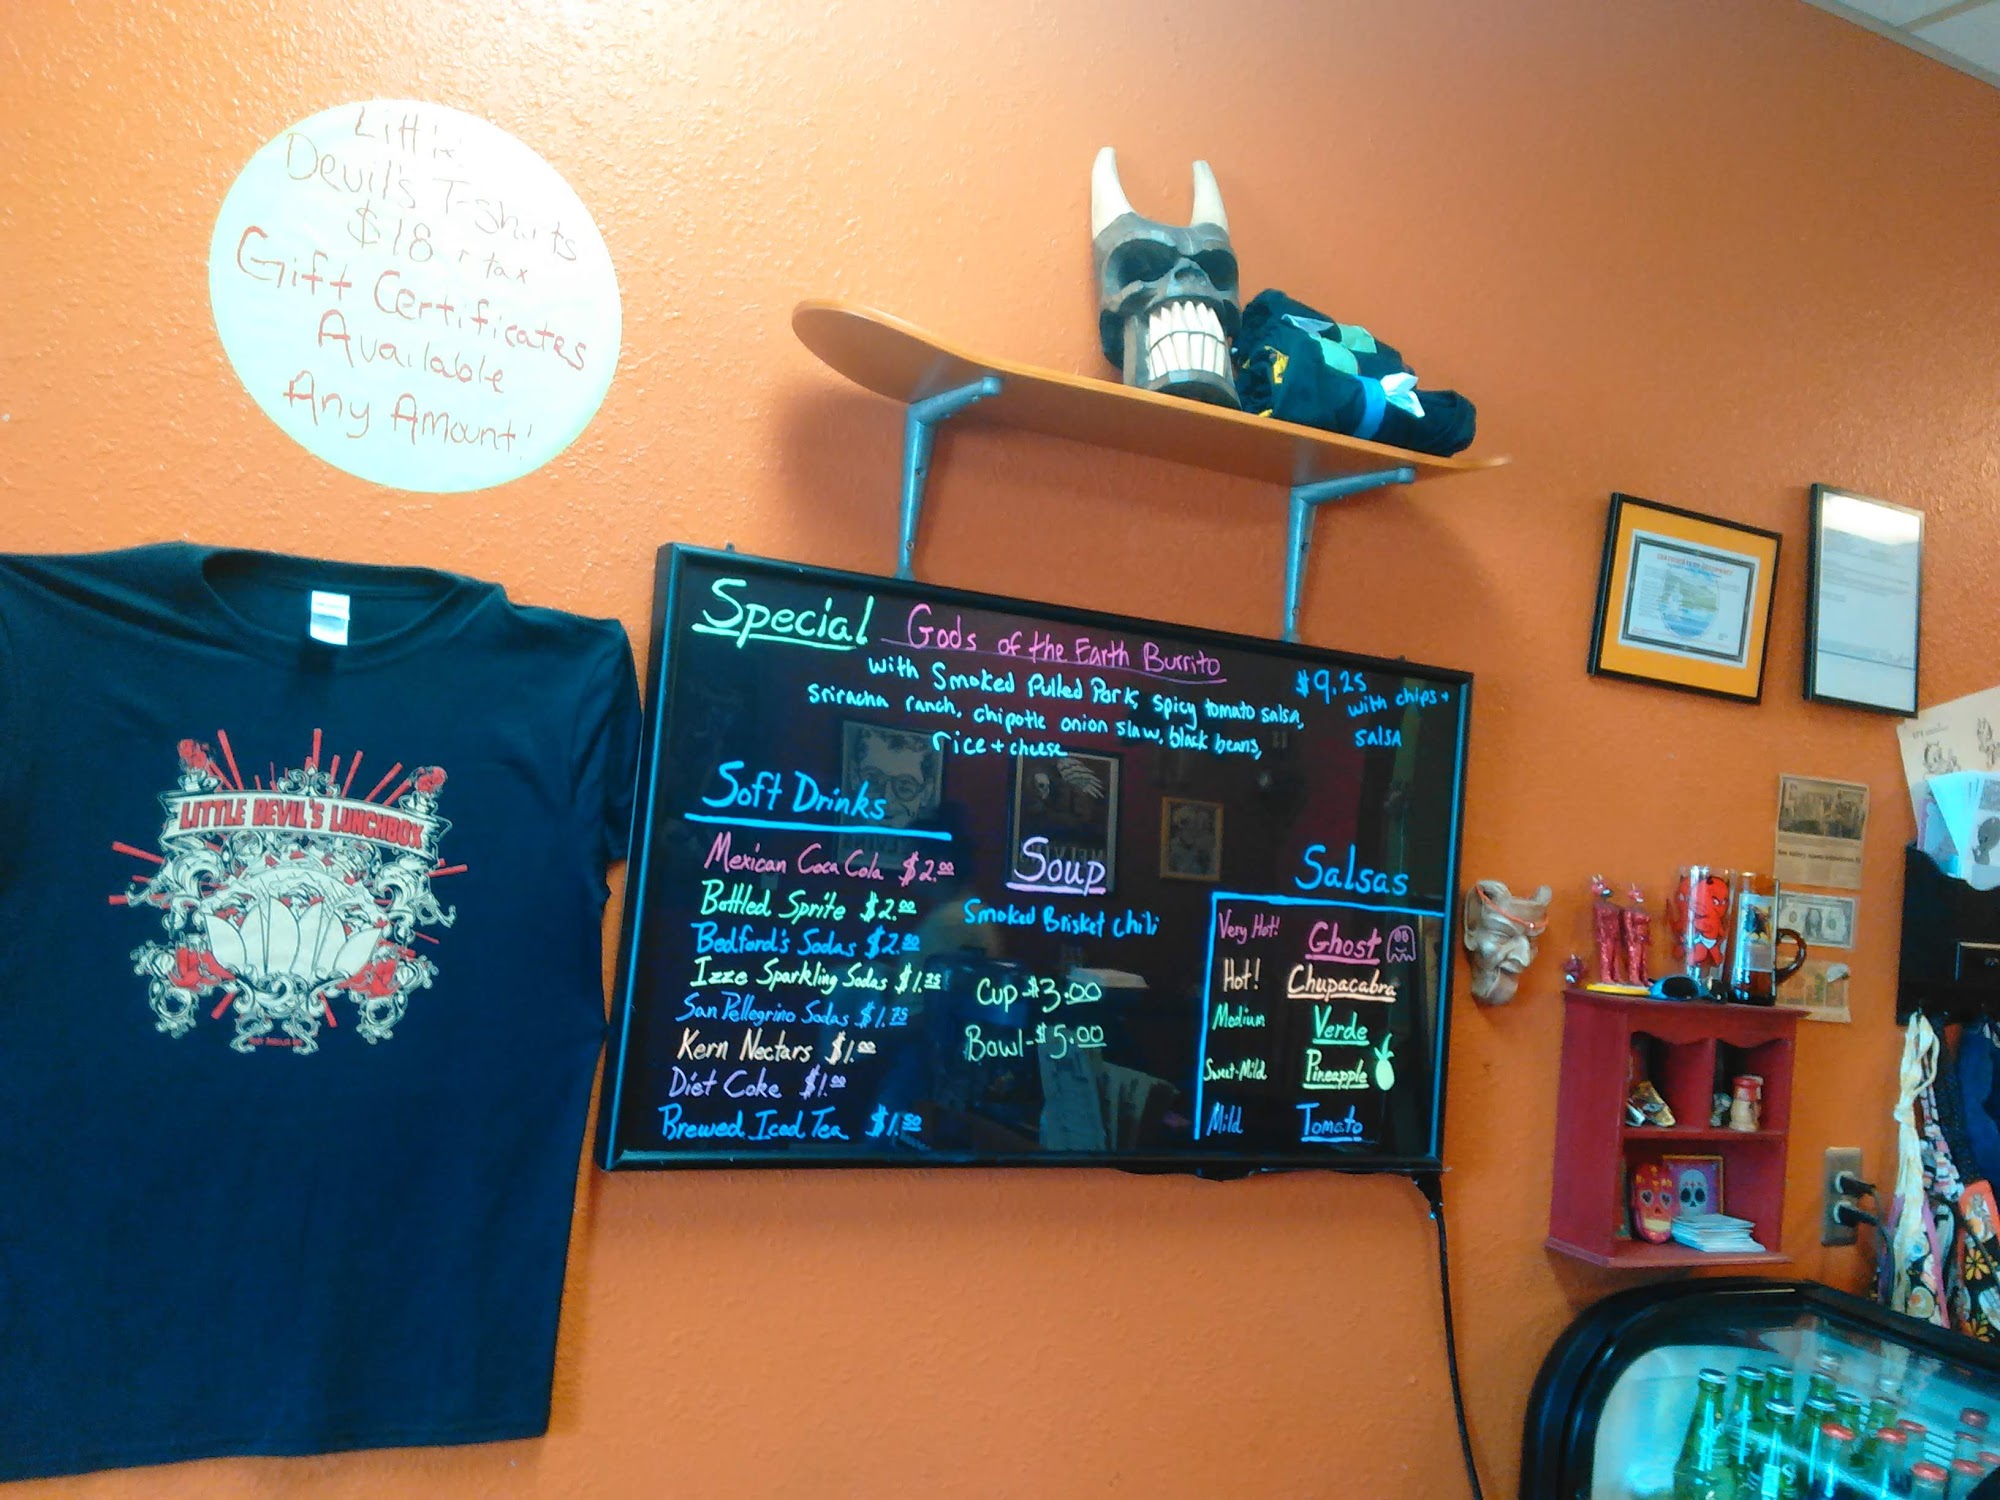 Devil's T-shirts
$18 + tax
Gift Certificates
Available
Any Amount!
LITTLE DEVIL'S LUNCHBOX
Special Gods of the Earth Burrito
with Smoked Pulled Pork, spicy tomato salsa,
sriracha ranch, chipotle onion slaw, black beans,
rice + cheese
$9.25
with chips +
salsa
Soft Drinks
Mexican Coca Cola $2.00
Bottled Sprite $2.00
Bedford's Sodas $2.50
Izze Sparkling Sodas $1.25
San Pellegrino Sodas $1.75
Kern Nectars $1.00
Diet Coke $1.00
Brewed Iced Tea $1.50
Soup
Smoked Brisket Chili
Cup-$3.00
Bowl-$5.00
Salsas
Very Hot! Ghost
Hot! Chupacabra
Medium Verde
Sweet-Mild Pineapple
Mild Tomato